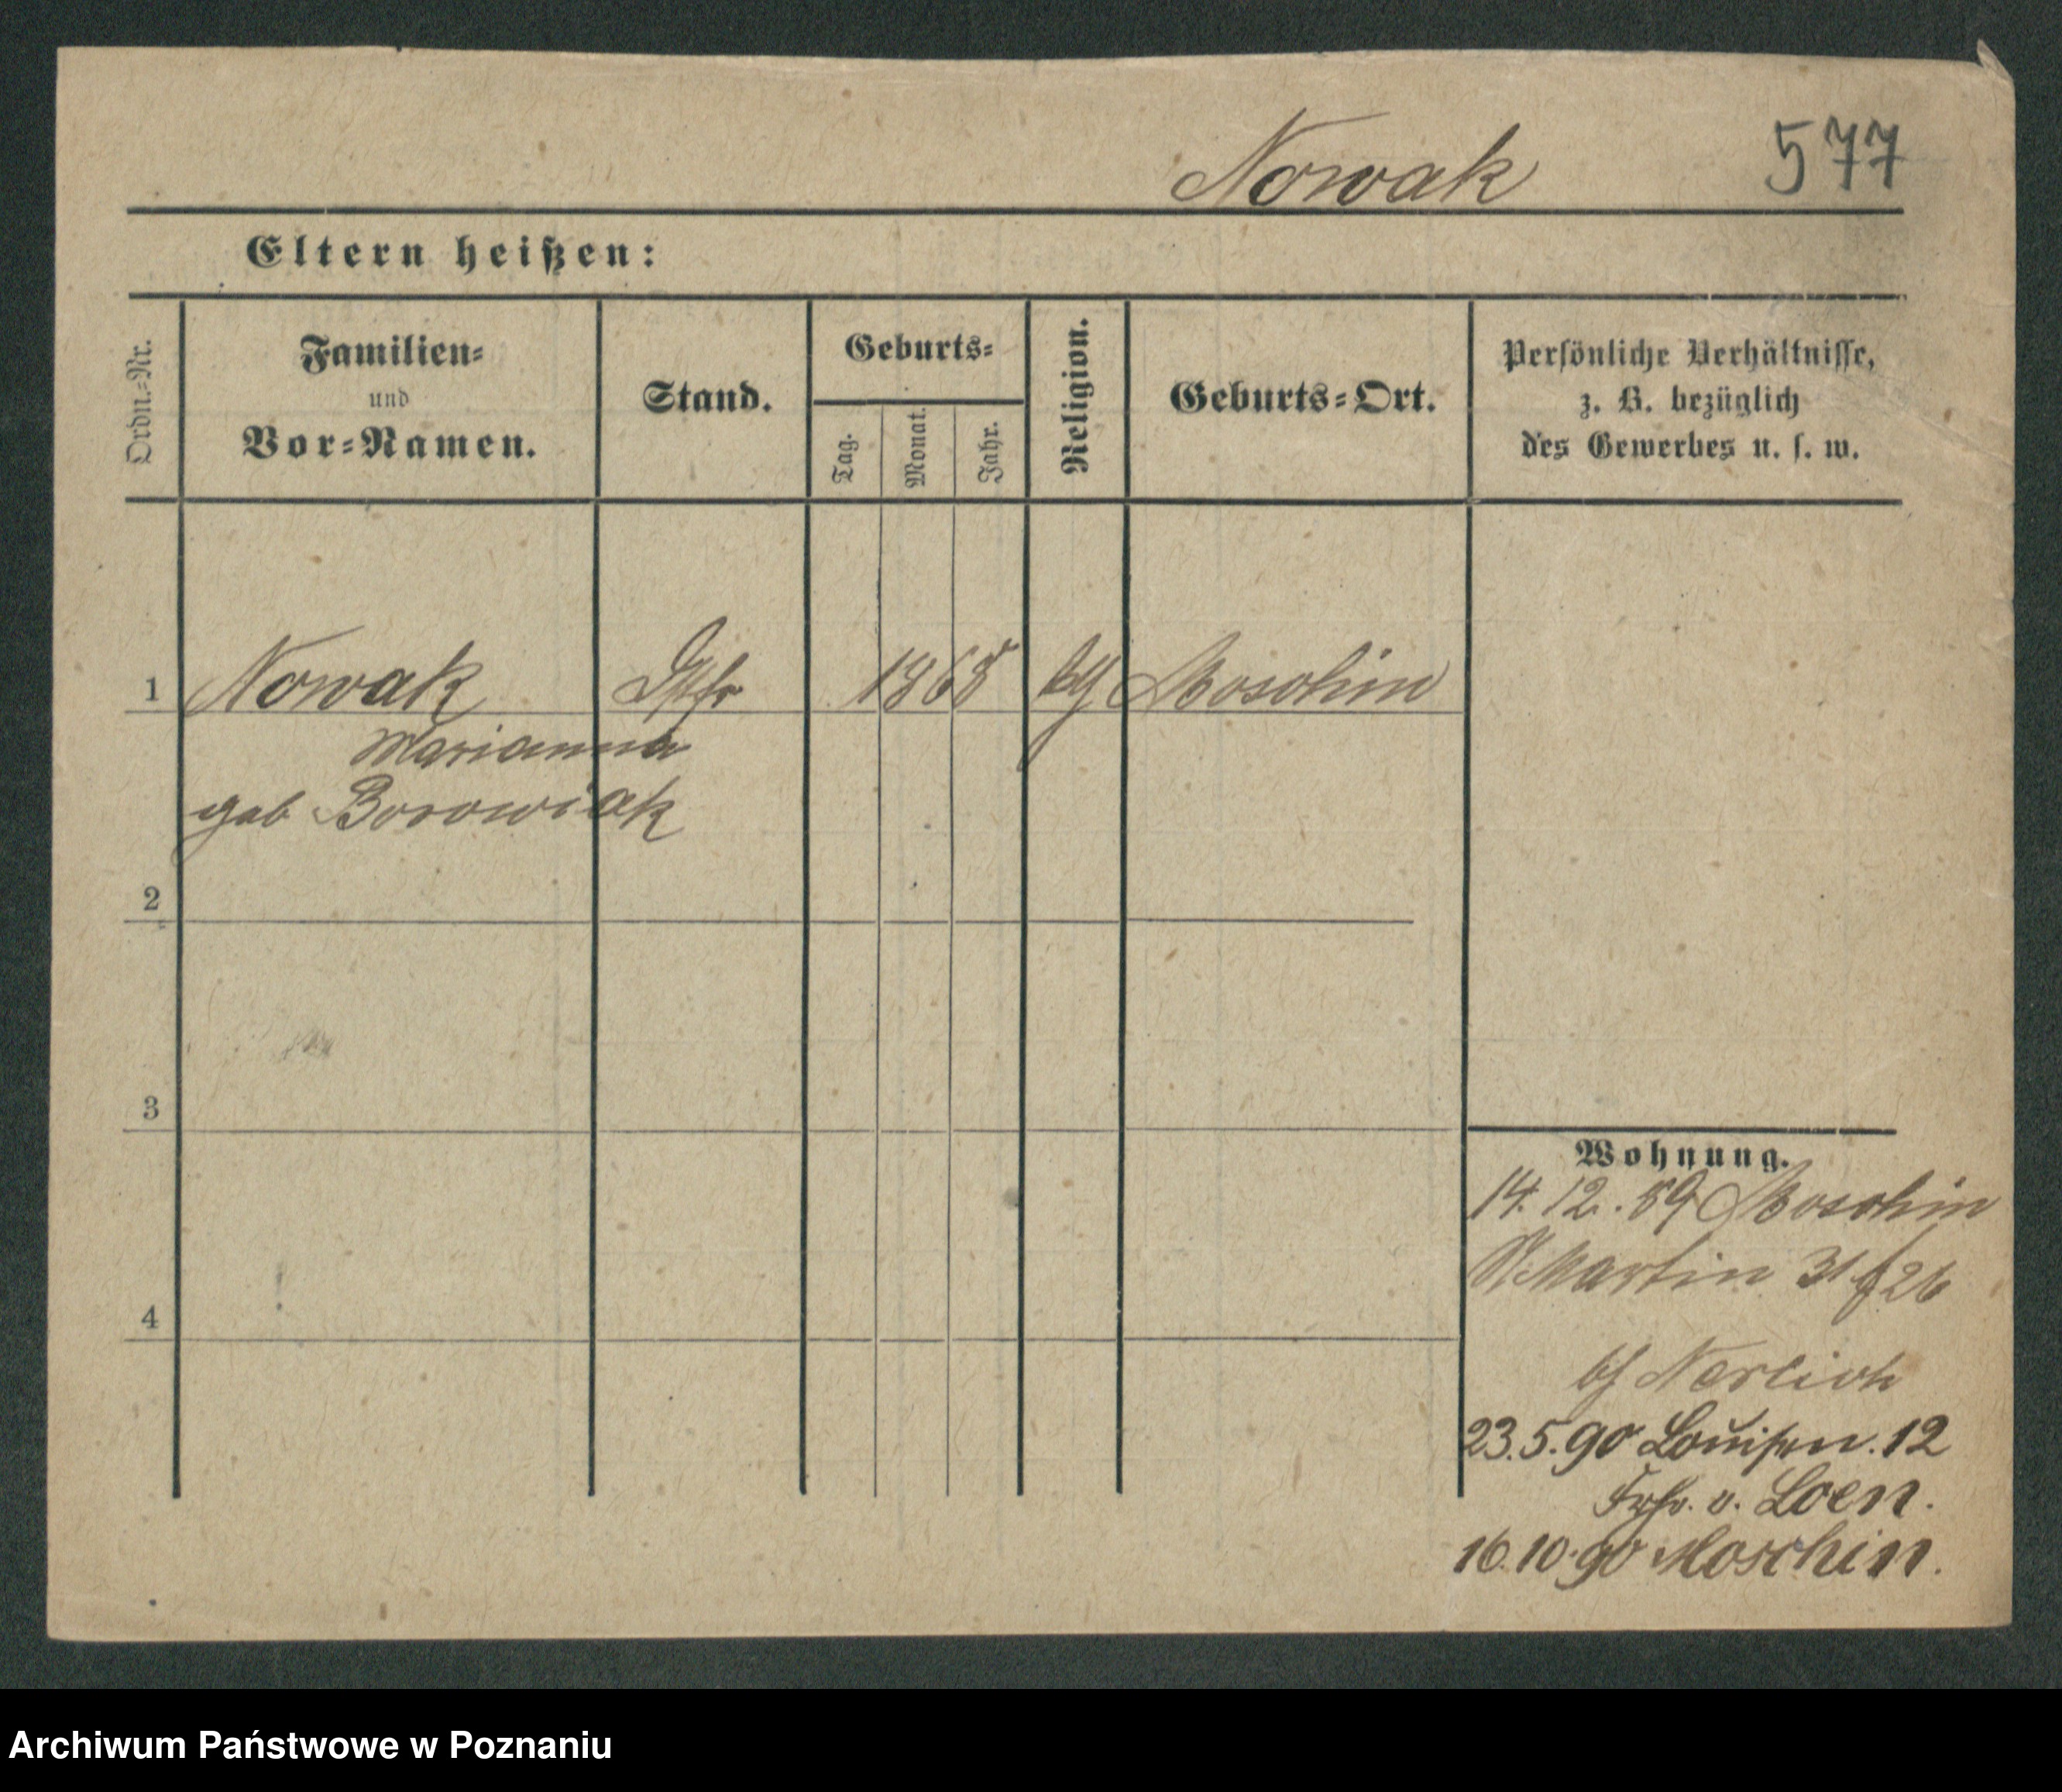 Nowak 577
Eltern heißen:
Ordn.-Nr.
Familien-
und
Vor-Namen.
Stand.
Geburts-
Tag.
Monat.
Jahr.
Religion.
Geburts-Ort.
Persönliche Verhältnisse,
z. B. bezüglich
des Gewerbes u. s. w.
1 Nowak 1865 Moschin
Marianna
geb Borowiak
2
3
4
Wohnung.
14.12.89 Moschin
St Martin 31 26
bf Nerlich
23.5.90 Louisen. 12
Frhr. v. Loen.
16.10.90 Moschin.
Archiwum Państwowe w Poznaniu